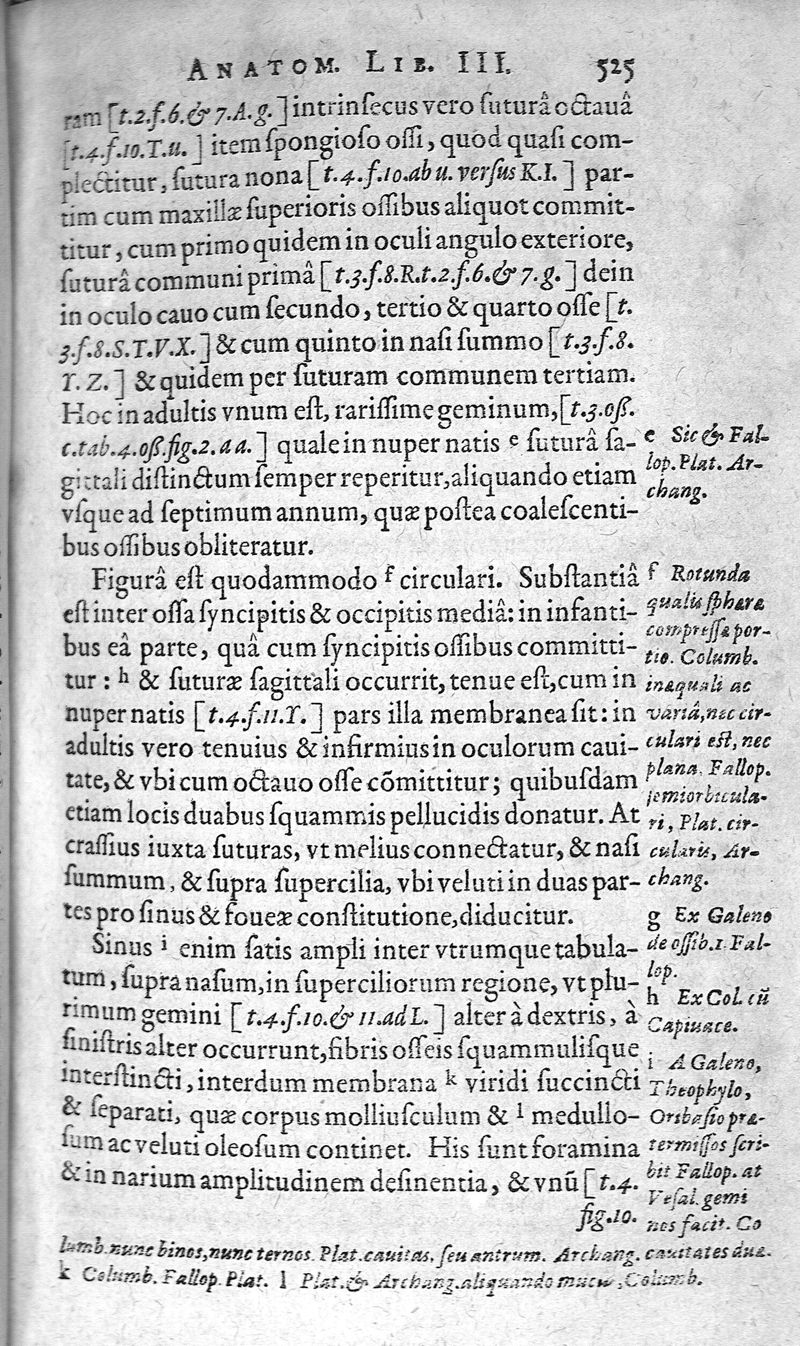 ANATOM. LIB. III. 525
ram [t.2.f.6.& 7.A.g.] intrinſecus vero ſuturâ octauâ
[t.4.f.10.T.u.] item ſpongioſo oſſi, quod quaſi com-
plectitur, ſutura nona [t.4.f.10.ab u. verſus K.I.] par-
tim cum maxillæ ſuperioris oſſibus aliquot commit-
titur, cum primo quidem in oculi angulo exteriore,
ſuturâ communi primâ [t.3.f.8.R.t.2.f.6.& 7.g.] dein
in oculo cauo cum ſecundo, tertio & quarto oſſe [t.
3.f.8.S.T.V.X.] & cum quinto in naſi ſummo [t.3.f.8.
Y. Z.] & quidem per ſuturam communem tertiam.
Hoc in adultis vnum eſt, rariſſime geminum, [t.3.oſſ.
c.tab.4.oſſ.fig.2.aa.] quale in nuper natis e ſuturâ ſa-
gittali diſtinctum ſemper reperitur, aliquando etiam
vſque ad ſeptimum annum, quæ poſtea coaleſcenti-
bus oſſibus obliteratur.
Figurâ eſt quodammodo f circulari. Subſtantiâ
eſt inter oſſa ſyncipitis & occipitis mediâ: in infanti-
bus eâ parte, quâ cum ſyncipitis oſſibus committi-
tur : h & ſuturæ ſagittali occurrit, tenue eſt, cum in
nuper natis [t.4.f.11.Y.] pars illa membranea ſit: in
adultis vero tenuius & infirmius in oculorum caui-
tate, & vbi cum octauo oſſe cõmittitur; quibuſdam
etiam locis duabus ſquammis pellucidis donatur. At
craſſius iuxta ſuturas, vt melius connectatur, & naſi
ſummum, & ſupra ſupercilia, vbi veluti in duas par-
tes pro ſinus & foueæ conſtitutione, diducitur.
Sinus i enim ſatis ampli inter vtrumque tabula-
tum, ſupra naſum, in ſuperciliorum regione, vt plu-
rimum gemini [t.4.f.10.& 11.ad L.] alter à dextris, à
ſiniſtris alter occurrunt, fibris oſſeis ſquammuliſque
interſtincti, interdum membrana k viridi ſuccincti
& ſeparati, quæ corpus molliuſculum & l medullo-
ſum ac veluti oleoſum continet. His ſunt foramina
& in narium amplitudinem deſinentia, & vnũ [t.4.
fig.10.
e Sic & Fal-
lop. Plat. Ar-
chang.
f Rotunda
qualis ſphæræ
compreſſæ por-
tio. Columb.
inæquali ac
variâ, nec cir-
culari eſt, nec
plana. Fallop.
ſemiorbicula-
ri, Plat. cir-
cularis, Ar-
chang.
g Ex Galeno
de oſſib.1. Fal-
lop.
h Ex Col. cũ
Capiuacc.
i A Galeno,
Theophylo,
Oribaſio præ-
termiſſos ſcri-
bit Fallop. at
Veſal. gemi
nos facit. Co
lumb. nunc binos, nunc ternos. Plat. cauitas, ſeu antrum. Archang. cauitates duæ.
k Columb. Fallop. Plat. l Plat. & Archang. aliquando mucus, Columb.